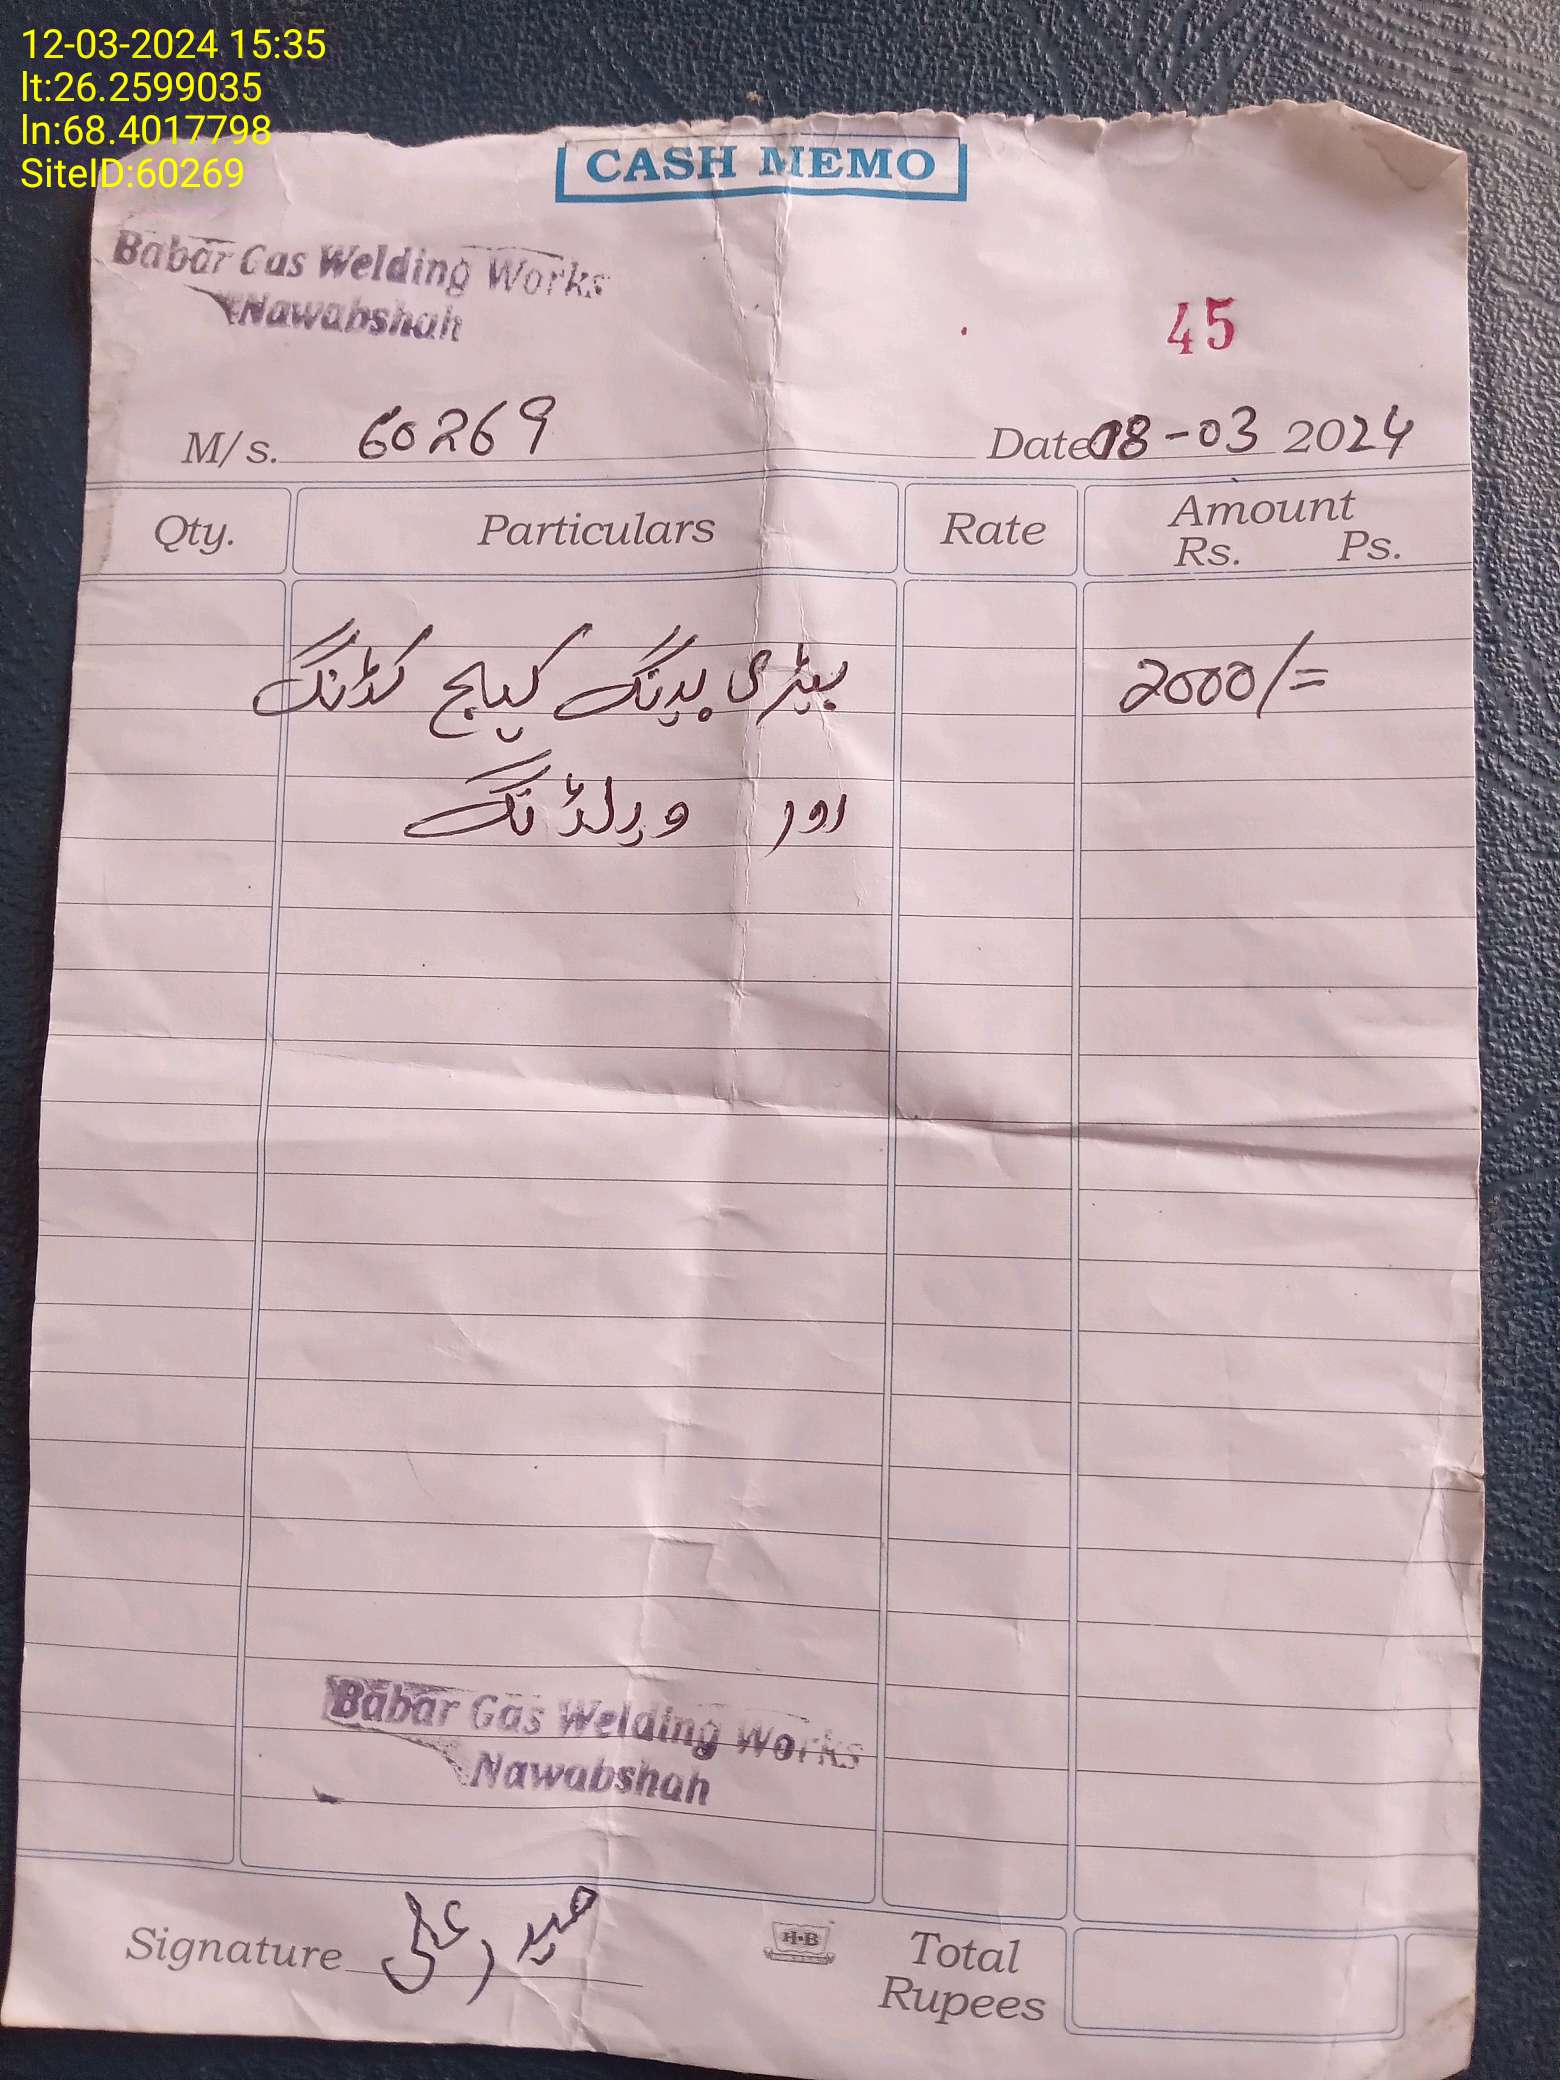 12-03-2024 15:35
lt:26.2599035
ln:68.4017798
SiteID:60269
CASH MEMO
Babar Gas Welding Works
Nawabshah
45
M/s. 60269 Date 08-03 2024
Qty. Particulars Rate Amount
Rs. Ps.
بیٹری کیج کٹنگ 2000/=
اور ویلڈنگ
Babar Gas Welding Works
Nawabshah
Signature علی
H-B
Total
Rupees